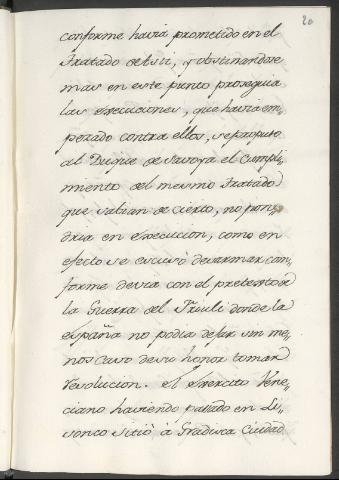 20
conforme havia prometido en el
Tratado de Asti, y obstinandose
mas en este punto proseguia
las execuciones, que havia em,,
pezado contra ellos, se propuso
al Duque de Savoya el Cumpli,,
miento del mesmo Tratado
que sabian de cierto, no pon,,
dria en execucion, como en
efecto se escusó desarmar con,,
forme devia con el pretexto de
la Guerra del Friuli donde la
españa no podia dejar sin me,,
nos cavo de su honor tomar
resolucion. el exercito Vene,,
ciano haviendo pasado en Li,,
sonco sitió à Gradisca Ciudad